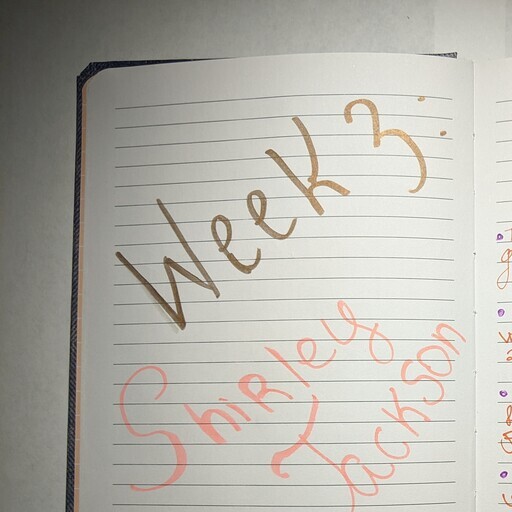 Week 3:
Shirley
Jackson